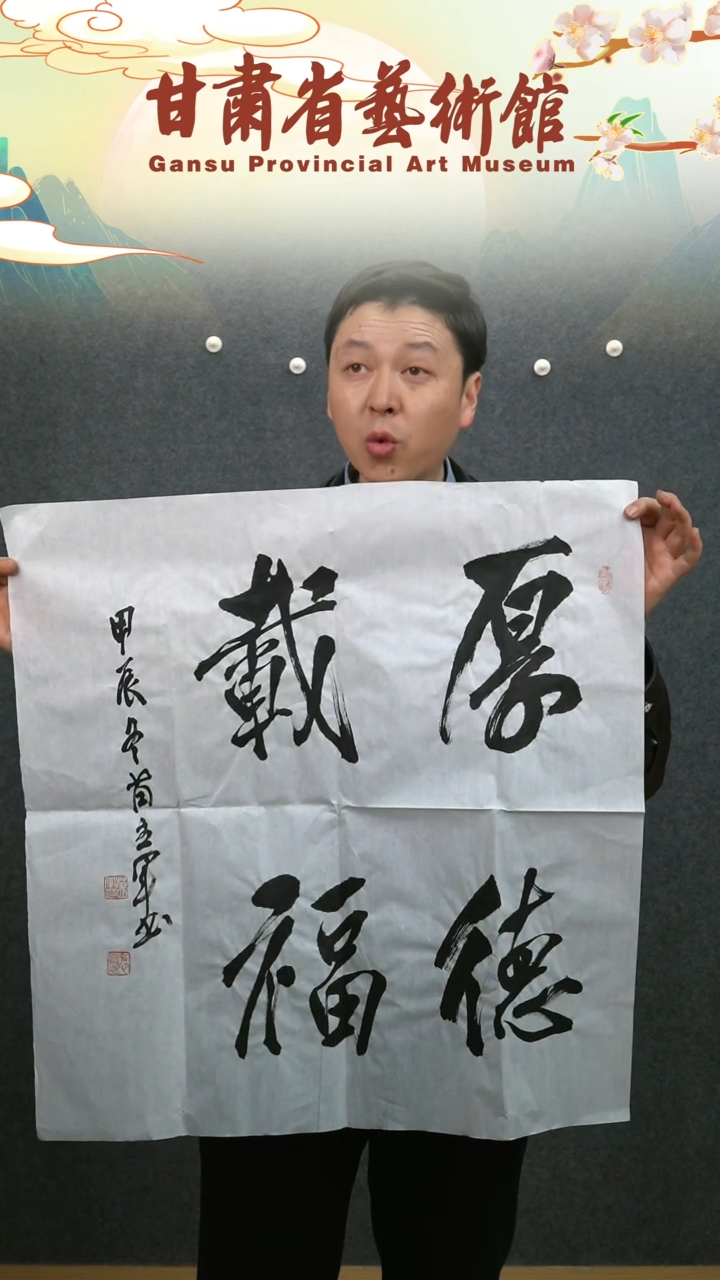 甘肅省藝術館
Gansu Provincial Art Museum
厚德
載福
甲辰冬苟立軍书